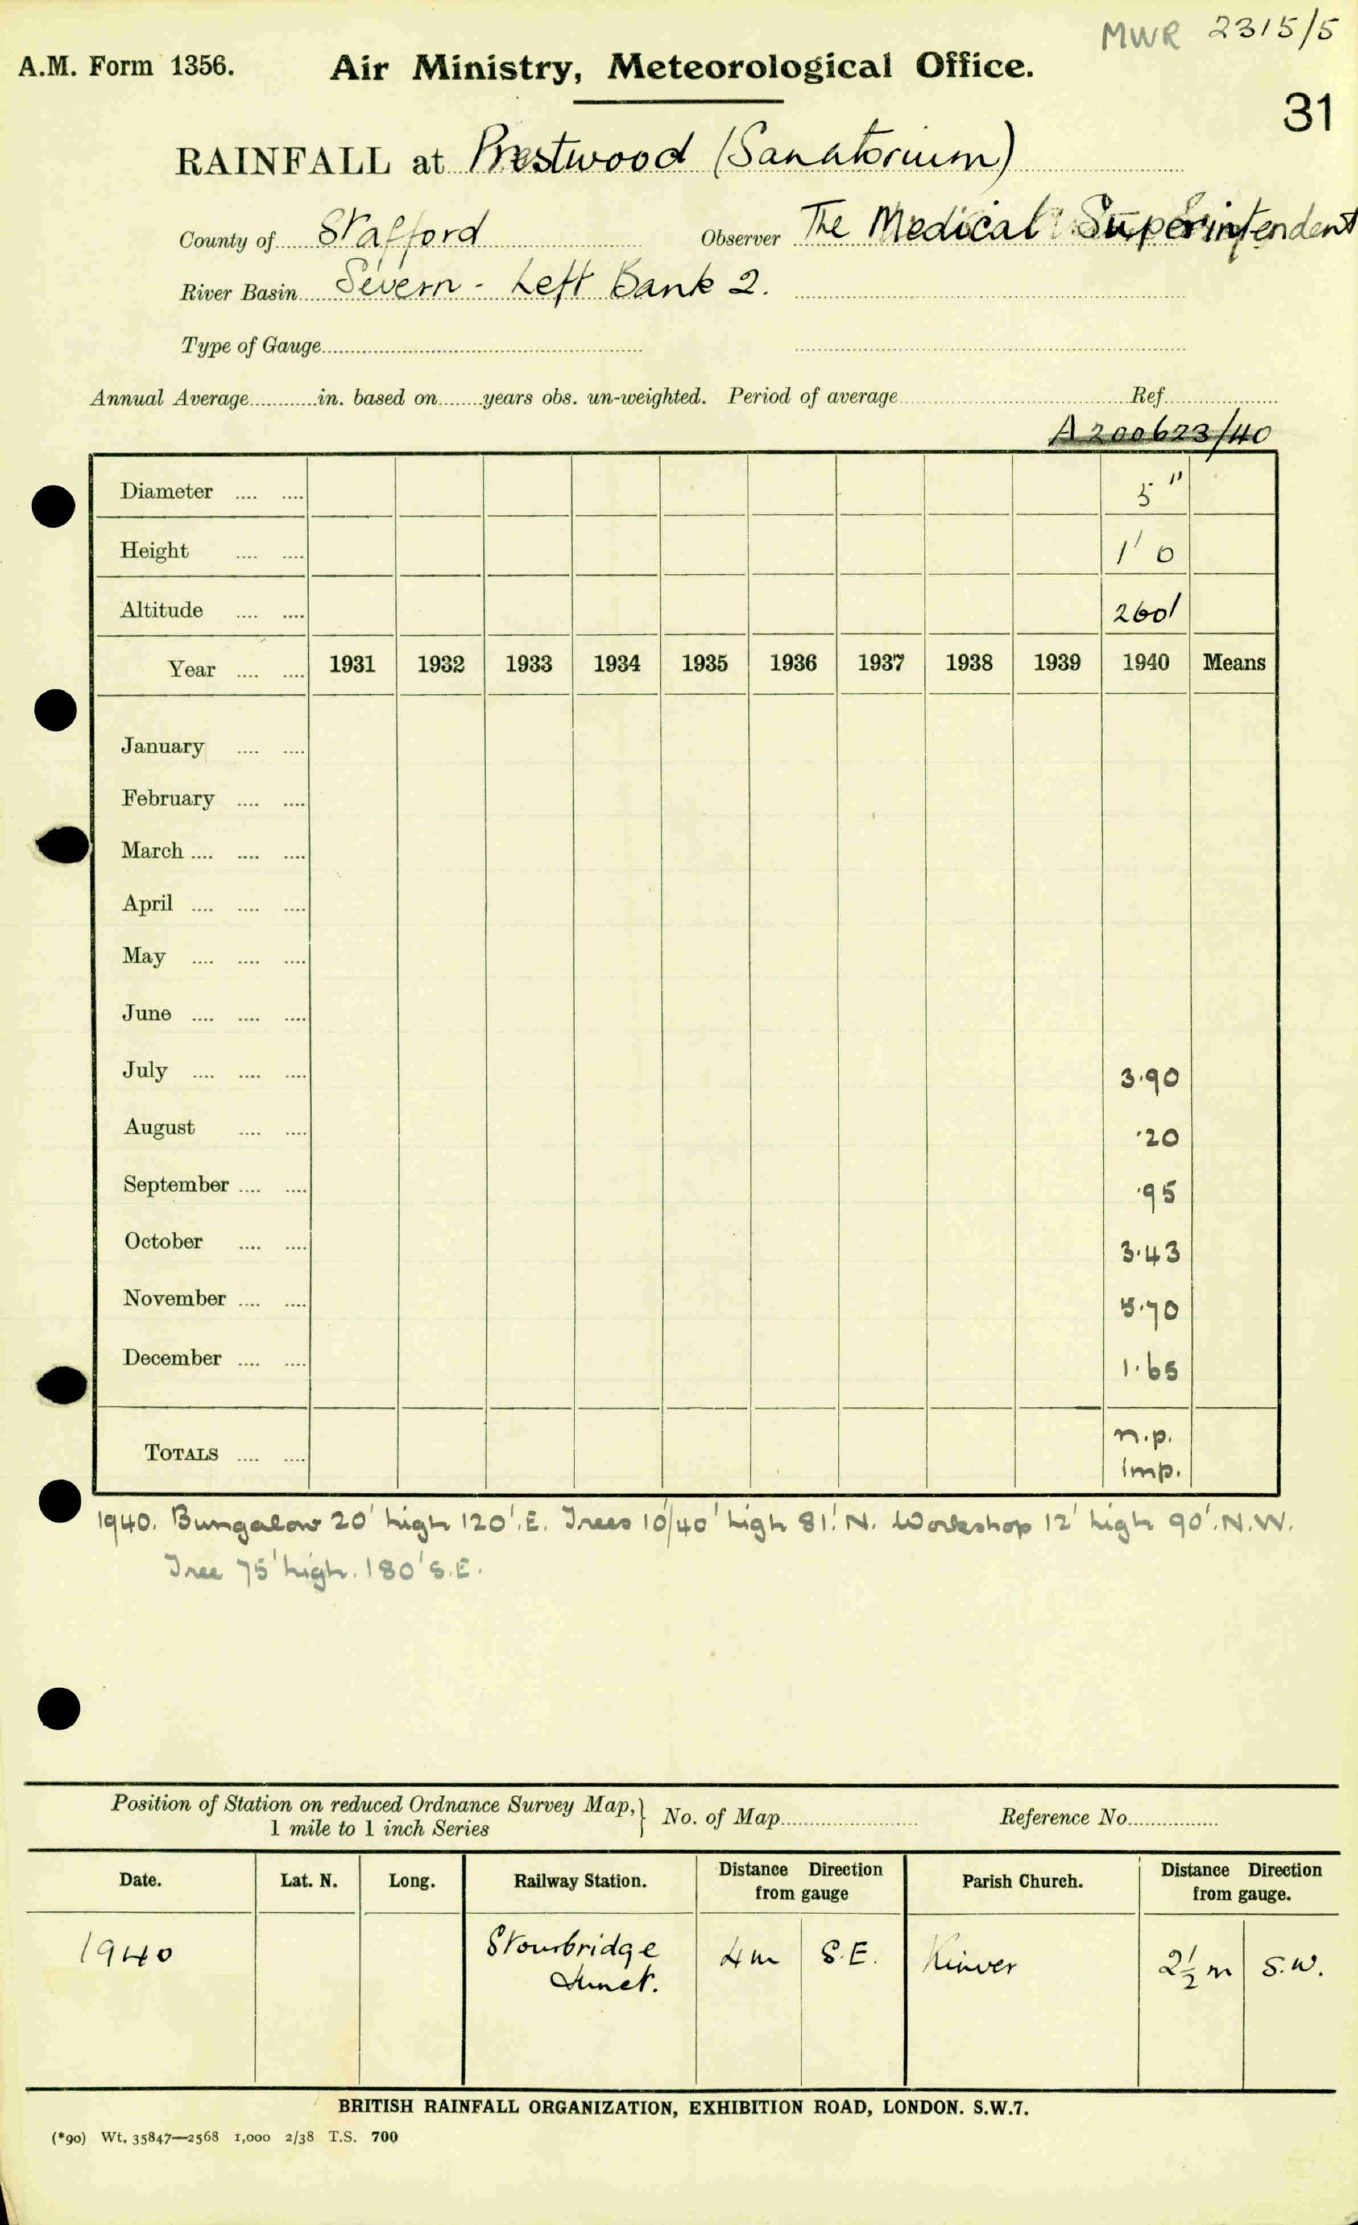 MWR 2315/5
A.M. Form 1356.
Air Ministry, Meteorological Office.
31
RAINFALL at Prestwood (Sanatorium)
County of Stafford Observer The Medical Superintendent
River Basin Severn - Left Bank 2.
Type of Gauge
Annual Average in. based on years obs. un-weighted. Period of average Ref.
A200623/40
Diameter 5"
Height 1' 0
Altitude 260'
Year 1931 1932 1933 1934 1935 1936 1937 1938 1939 1940 Means
January
February
March
April
May
June
July 3.90
August .20
September .95
October 3.43
November 5.70
December 1.65
TOTALS n.p.
imp.
1940. Bungalow 20' high 120'. E. Trees 10/40' high 81'. N. Workshop 12' high 90'. N.W.
Tree 75' high. 180' S.E.
Position of Station on reduced Ordnance Survey Map, 1 mile to 1 inch Series } No. of Map Reference No.
Date. Lat. N. Long. Railway Station. Distance Direction from gauge Parish Church. Distance Direction from gauge.
1940 Stourbridge Junct. 4m S.E. Kinver 2½m S.W.
BRITISH RAINFALL ORGANIZATION, EXHIBITION ROAD, LONDON. S.W.7.
(*90) Wt. 35847—2568 1,000 2/38 T.S. 700